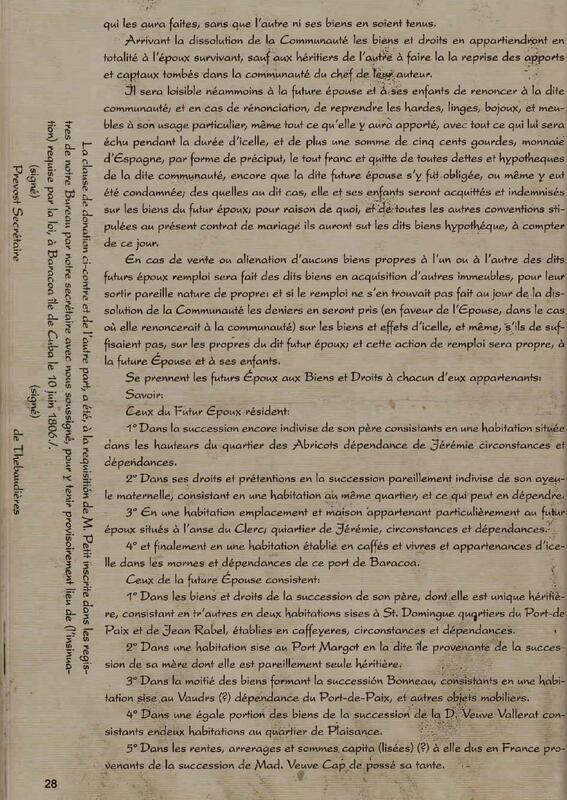 qui les aura faites, sans que l'autre ni ses biens en soient tenus.
Arrivant la dissolution de la Communauté les biens et droits en appartiendront en
totalité à l'époux survivant, sauf aux héritiers de l'autre à faire la la reprise des apports
et captaux tombés dans la communauté du chef de leur auteur.
Il sera loisible néammoins à la future épouse et à ses enfants de renoncer à la dite
communauté; et en cas de rénonciation, de reprendre les hardes, linges, bojoux, et meu-
bles à son usage particulier, même tout ce qu'elle y aura apporté, avec tout ce qui lui sera
échu pendant la durée d'icelle, et de plus une somme de cinq cents gourdes, monnaie
d'Espagne, par forme de préciput, le tout franc et quitte de toutes dettes et hypotheques
de la dite communauté, encore que la dite future épouse s'y fut obligée, ou même y eut
été condamnée; des quelles au dit cas, elle et ses enfants seront acquittés et indemnisés
sur les biens du futur époux; pour raison de quoi, et de toutes les autres conventions sti-
pulées au présent contrat de mariage ils auront sur les dits biens hypothéque, à compter
de ce jour.
En cas de vente ou alienation d'aucuns biens propres à l'un ou à l'autre des dits
futurs époux remploi sera fait des dits biens en acquisition d'autres immeubles, pour leur
sortir pareille nature de propre; et si le remploi ne s'en trouvait pas fait au jour de la dis-
solution de la Communauté les deniers en seront pris (en faveur de l'Epouse, dans le cas
où elle renoncerait à la communauté) sur les biens et effets d'icelle, et même, s'ils de suf-
fisaient pas, sur les propres du dit futur époux; et cette action de remploi sera propre, à
la future Épouse et à ses enfants.
Se prennent les futurs Époux aux Biens et Droits à chacun d'eux appartenants:
Savoir:
Ceux du Futur Epoux résident:
1° Dans la succession encore indivise de son père consistants en une habitation située
dans les hauteurs du quartier des Abricots dépendance de Jérémie circonstances et
dépendances.
2° Dans ses droits et prétentions en la succession pareillement indivise de son ayeu-
le maternelle, consistant en une habitation au même quartier, et ce qui peut en dépendre.
3° En une habitation emplacement et maison appartenant particulièrement au futur
époux situés à l'anse du Clerc; quiartier de Jérémie, circonstances et dépendances.
4° et finalement en une habitation établie en caffés et vivres et appartenances d'ice-
lle dans les mornes et dépendances de ce port de Baracoa.
Ceux de la future Épouse consistent:
1° Dans les biens et droits de la succession de son père, dont elle est unique hérifiè-
re, consistant en tr'autres en deux habitations sises à St. Domingue quqrtiers du Port-de
Paix et de Jean Rabel, établies en caffeyeres, circonstances et dépendances.
2° Dans une habitation sise au Port Margot en la dite île provenante de la succes-
sion de sa mère dont elle est pareillement seule héritière.
3° Dans la moitié des biens formant la successión Bonneau, consistants en une habi-
tation sise au Vaudrs (?) dépendance du Port-de-Paix, et autres objets mobiliers.
4° Dans une égale portion des biens de la succession de la D. Veuve Vallerat con-
sistants endeux habitations au quartier de Plaisance.
5° Dans les rentes, arrerages et sommes capita (lisées) (?) à elle dus en France pro-
venants de la succession de Mad. Veuve Cap de possé sa tante.
La clause de donation ci-contre et de l'autre part, a été, à la requisition de M. Petit inscrite dans les regis-
tres de notre Bureau par notre secrétaire avec nous soussigné, pour y tenir provisoirement lieu de (l'insinua-
tion) requise par la loi, à Baracoa île de Cuba le 10 juin 1806./.
(signé) (signé)
Prevost Secrétaire de Thebaudieres
28